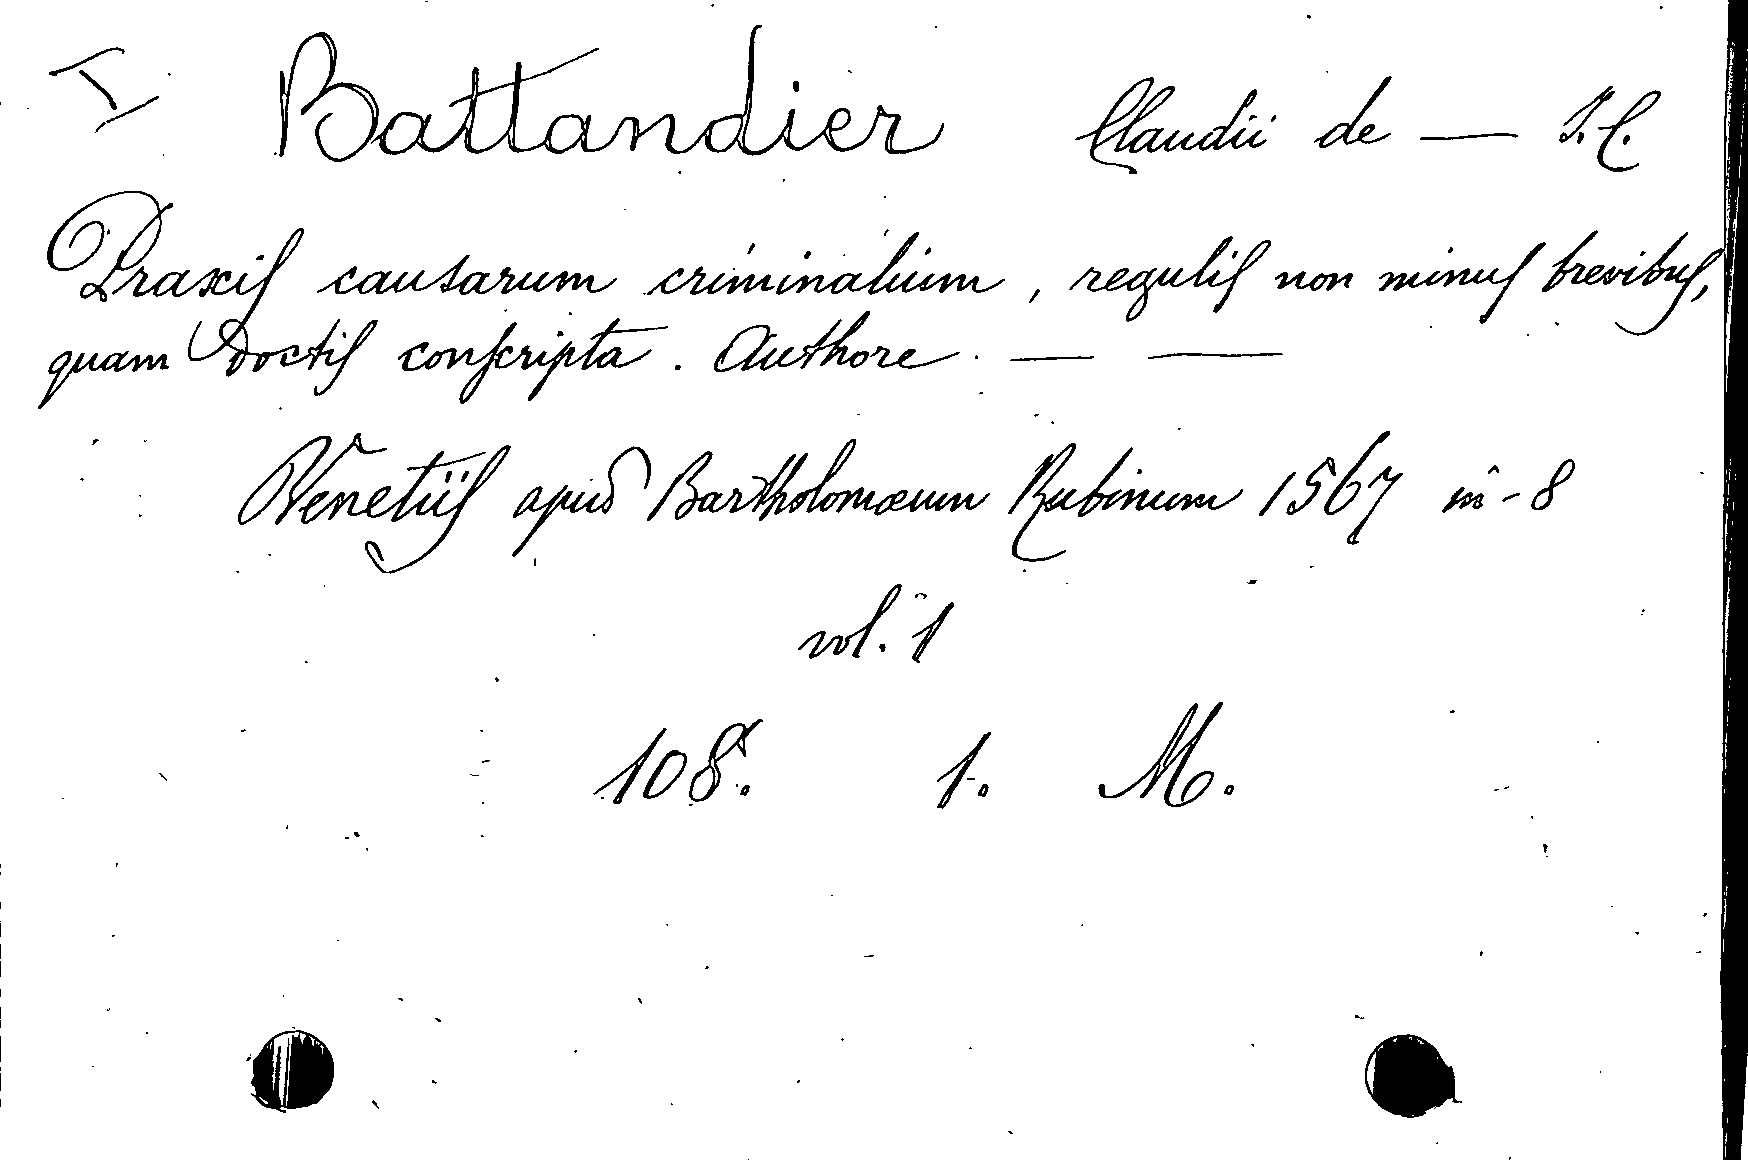 I Battandier Claudii de — J.C.
Praxis causarum criminalium, regulis non minus brevibus,
quam doctis conscripta. Authore. — —
Venetiis apud Bartholomæum Rubinum 1567 in-8
vol. 1
108. 1. M.